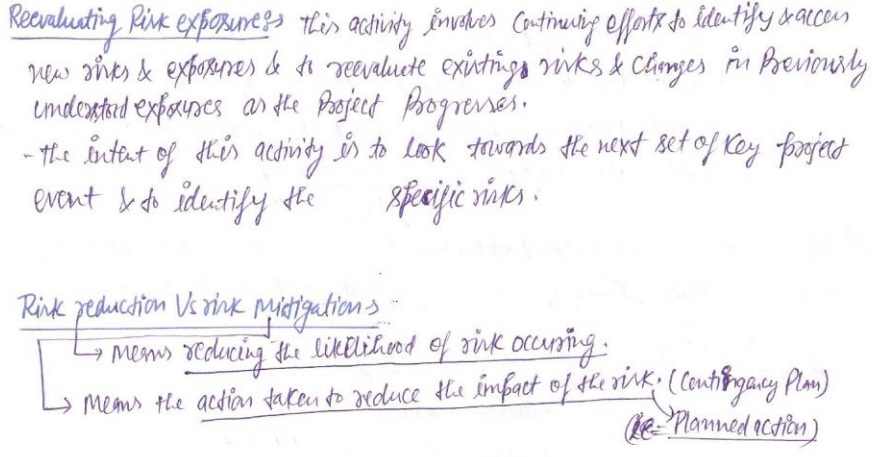 Reevaluating Risk exposures:> this activity involves Continuing efforts to identify & access
new risks & exposures & to reevaluete existings risks & changes in Previously
understood exposures as the Project Progresses.
- the intent of this activity is to look towards the next set of Key project
event & to identify the specific risks.
Risk reduction Vs risk mitigation:> -
→ means reducing the likelihood of risk occuring.
→ Means the action taken to reduce the impact of the risk. (Contingency Plan)
(ie - Planned action)